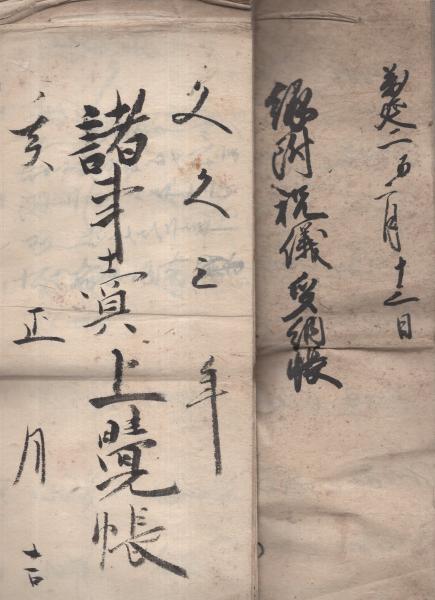 萬延二酉二月十二日
縁附祝儀受納帳
文久三年
諸事買上覺帳
亥正月吉